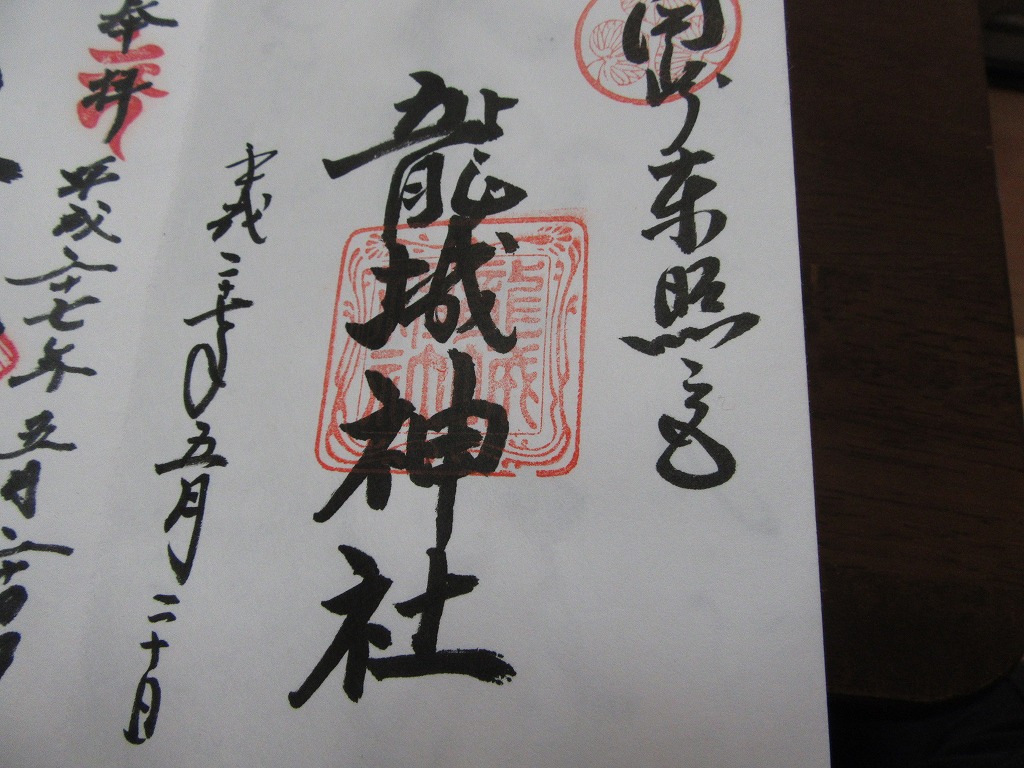 岡崎東照宮
龍城神社
平成二十七年五月二十日
奉拝
平成二十七年五月二十